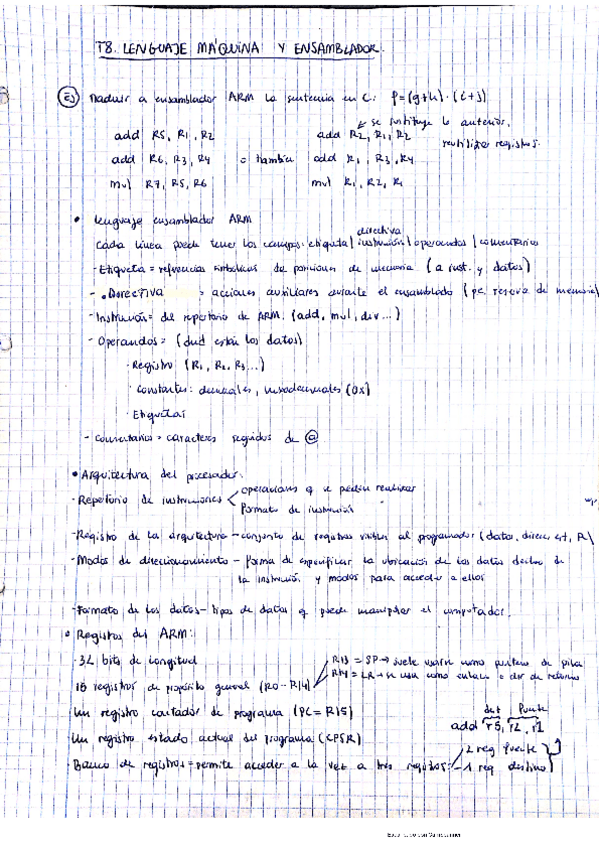 T8. LENGUAJE MÁQUINA Y ENSAMBLADOR.
Ej Traducir a ensamblador ARM la sentencia en C: f=(g+h)·(i+j)
se sustituye lo anterior.
add R5, R1, R2 add R2, R1, R2
reutilizar registros.
add R6, R3, R4 o también add R1, R3, R4
mul R7, R5, R6 mul R1, R2, R1
• Lenguaje ensamblador ARM
directiva
Cada línea puede tener los campos: etiqueta | instrucción | operandos | comentarios
- Etiqueta = referencias simbólicas de posiciones de memoria (a inst. y datos)
- .Directiva = acciones auxiliares durante el ensamblado (p.e. reserva de memoria)
- Instrucción = del repertorio de ARM. (add, mul, div...)
- Operandos = (dnd están los datos)
· Registro (R1, R2, R3...)
· Constantes: decimales, hexadecimales (0x)
· Etiquetas
- Comentarios = caracteres seguidos de @
• Arquitectura del procesador:
- Repertorio de instrucciones operaciones q se pueden realizar
Formato de instrucción
- Registro de la arquitectura - conjunto de registros visibles al programador (datos, direcc, est, R)
- Modos de direccionamiento - forma de especificar la ubicación de los datos dentro de
la instrucción y modos para acceder a ellos
- Formato de los datos - tipos de datos q puede manipular el computador.
• Registros del ARM:
- 32 bits de longitud
R13 = SP → suele usarse como puntero de pila
15 registros de propósito general (R0-R14) R14 = LR → se usa como enlace o dir de retorno
Un registro contador de programa (PC = R15)
dest Fuente
add r5, r2, r1
Un registro estado actual del programa (CPSR)
- Banco de registros = permite acceder a la vez a tres registros: 2 reg fuente
1 reg destino